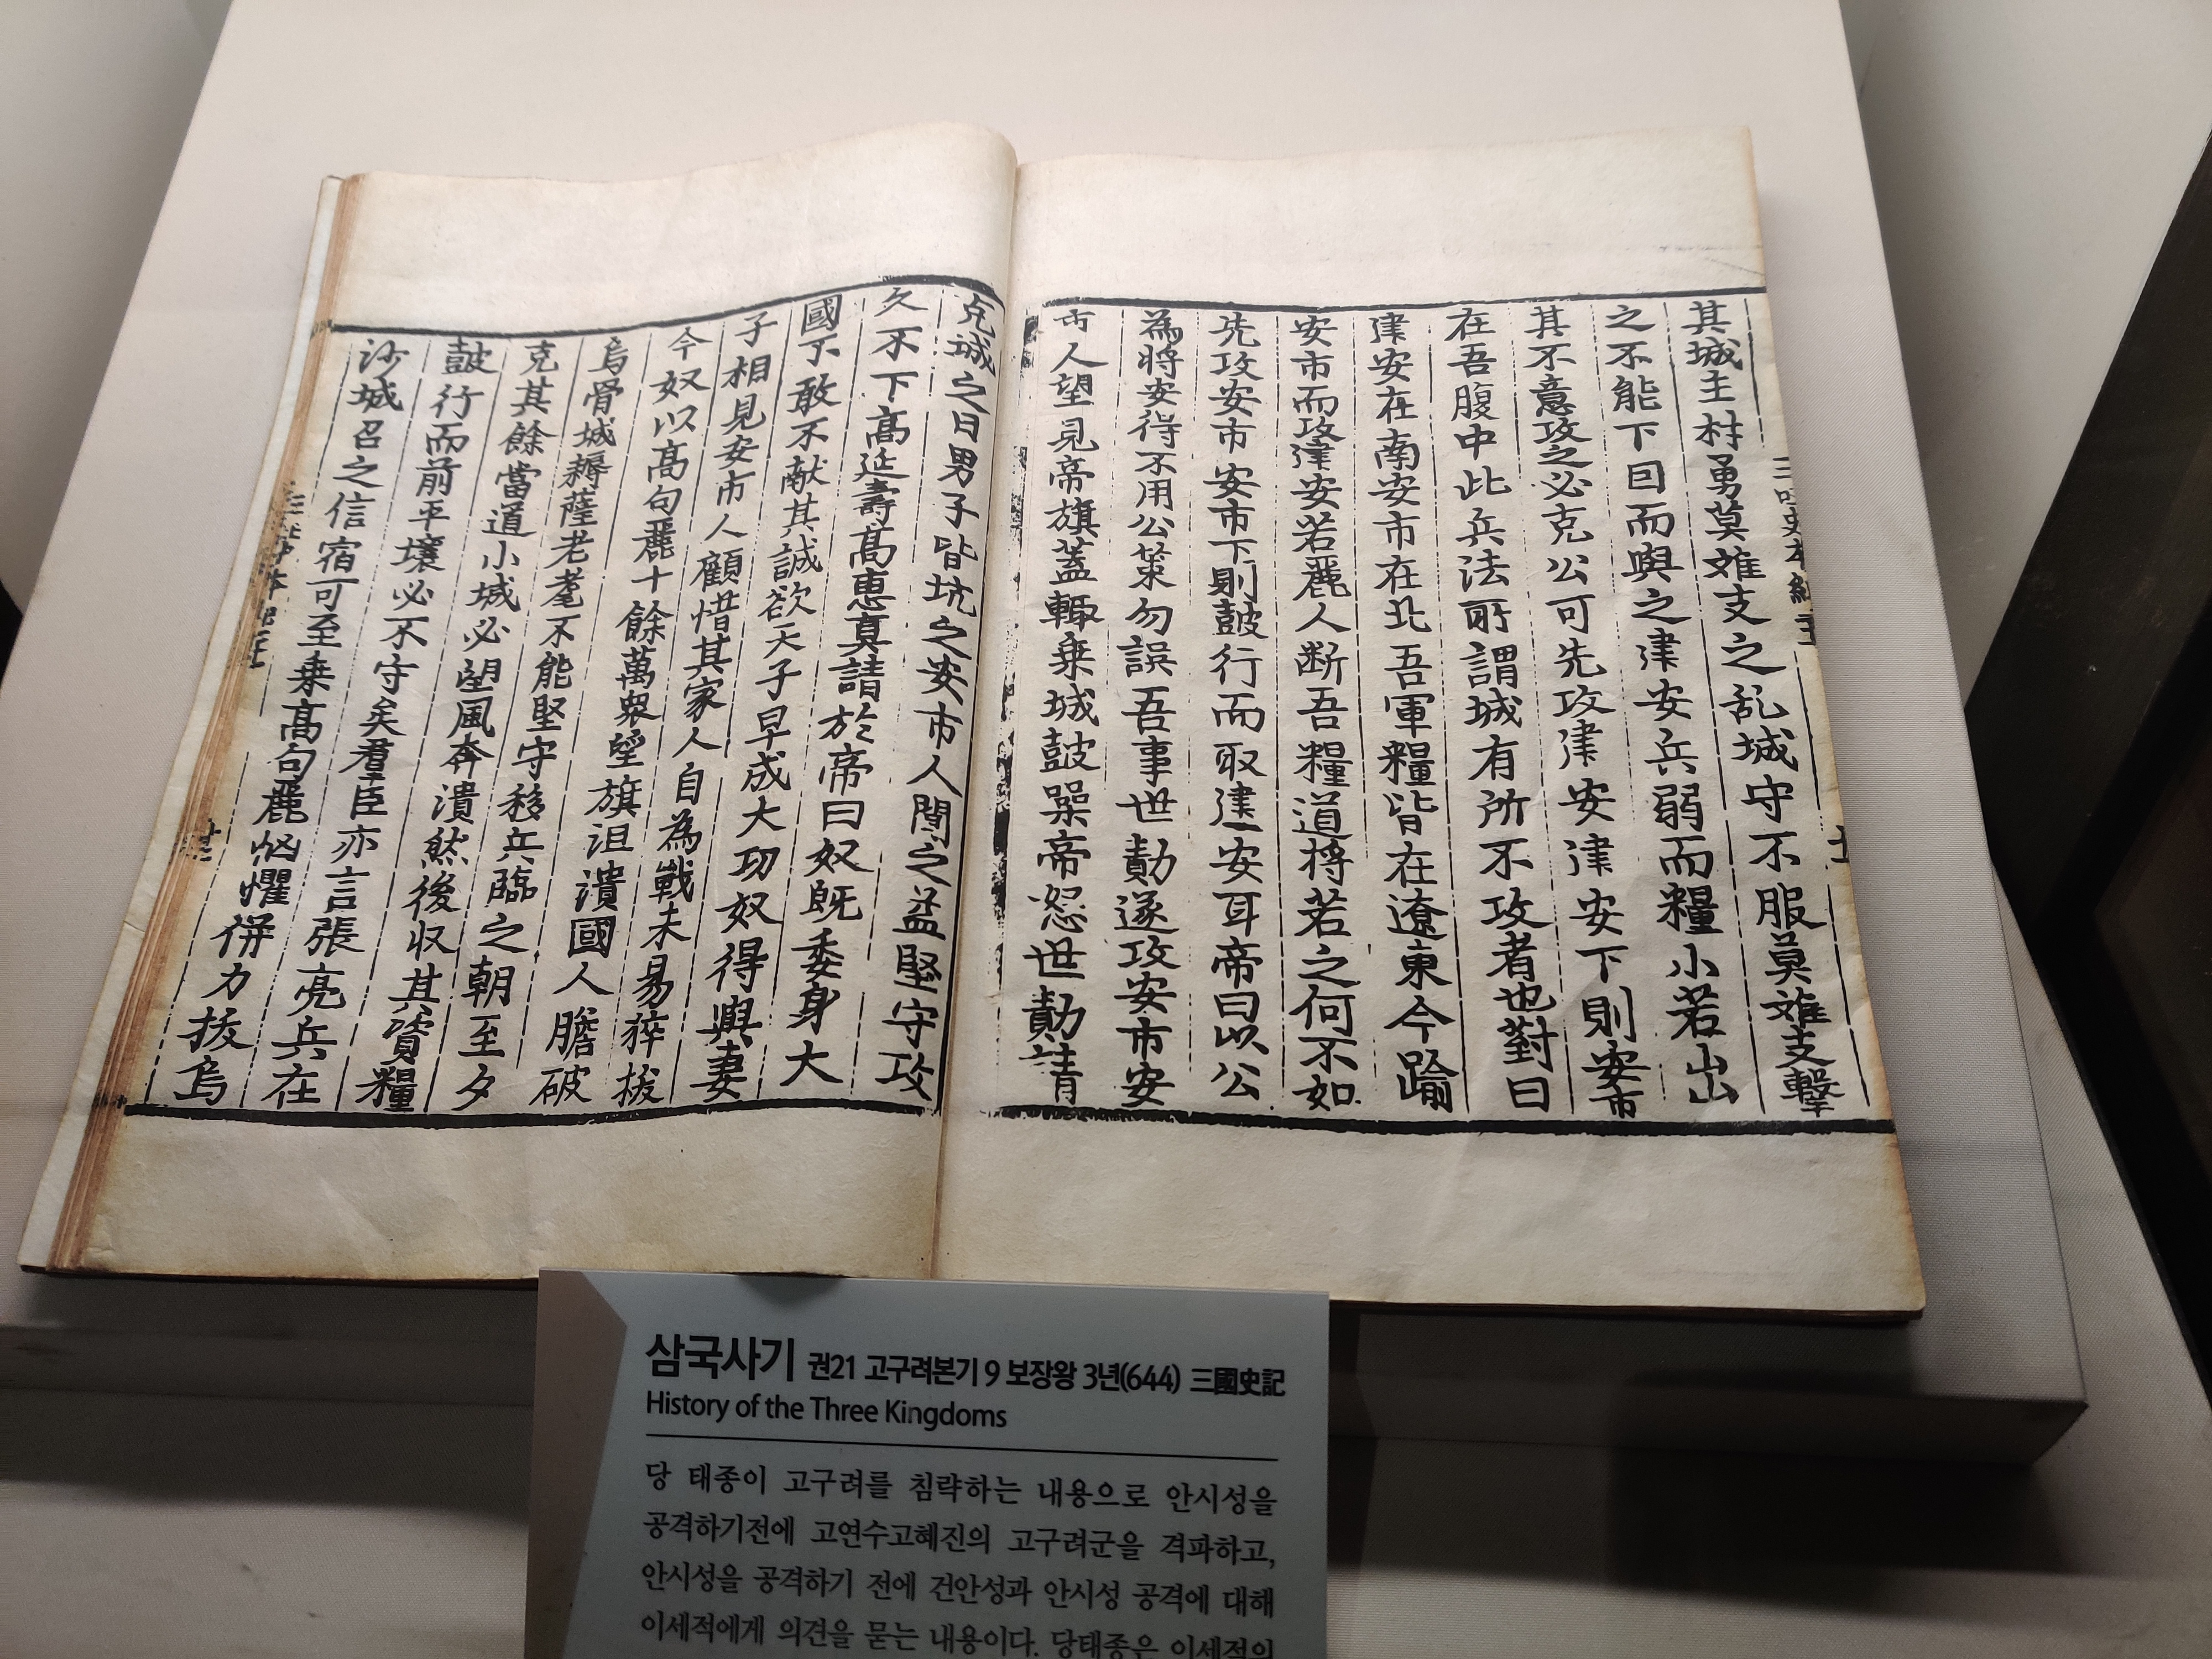 其城主材勇莫離支之乱城守不服莫離支擊
之不能下因而與之建安兵弱而糧小若出
其不意攻之必克公可先攻建安建安下則安市
在吾腹中此兵法所謂城有所不攻者也對曰
建安在南安市在北吾軍糧皆在遼東今踰
安市而攻建安若麗人断吾糧道將若之何不如
先攻安市安市下則鼓行而取建安耳帝曰以公
為將安得不用公策勿誤吾事世勣遂攻安市安
市人望見帝旗蓋輒乗城鼓噪帝怒世勣請
克城之日男子皆坑之安市人聞之益堅守攻
久不下高延壽高惠真請於帝曰奴既委身大
國不敢不献其誠欲天子早成大功奴得與妻
子相見安市人顧惜其家人自為戰未易猝拔
今奴以高句麗十餘萬衆望旗沮潰國人膽破
烏骨城耨薩老耄不能堅守移兵臨之朝至夕
克其餘當道小城必望風奔潰然後収其資糧
鼓行而前平壤必不守矣羣臣亦言張亮兵在
沙城召之信宿可至乗高句麗恟懼併力拔烏
삼국사기 권21 고구려본기 9 보장왕 3년(644) 三國史記
History of the Three Kingdoms
당 태종이 고구려를 침략하는 내용으로 안시성을
공격하기전에 고연수고혜진의 고구려군을 격파하고,
안시성을 공격하기 전에 건안성과 안시성 공격에 대해
이세적에게 의견을 묻는 내용이다. 당태종은 이세적의